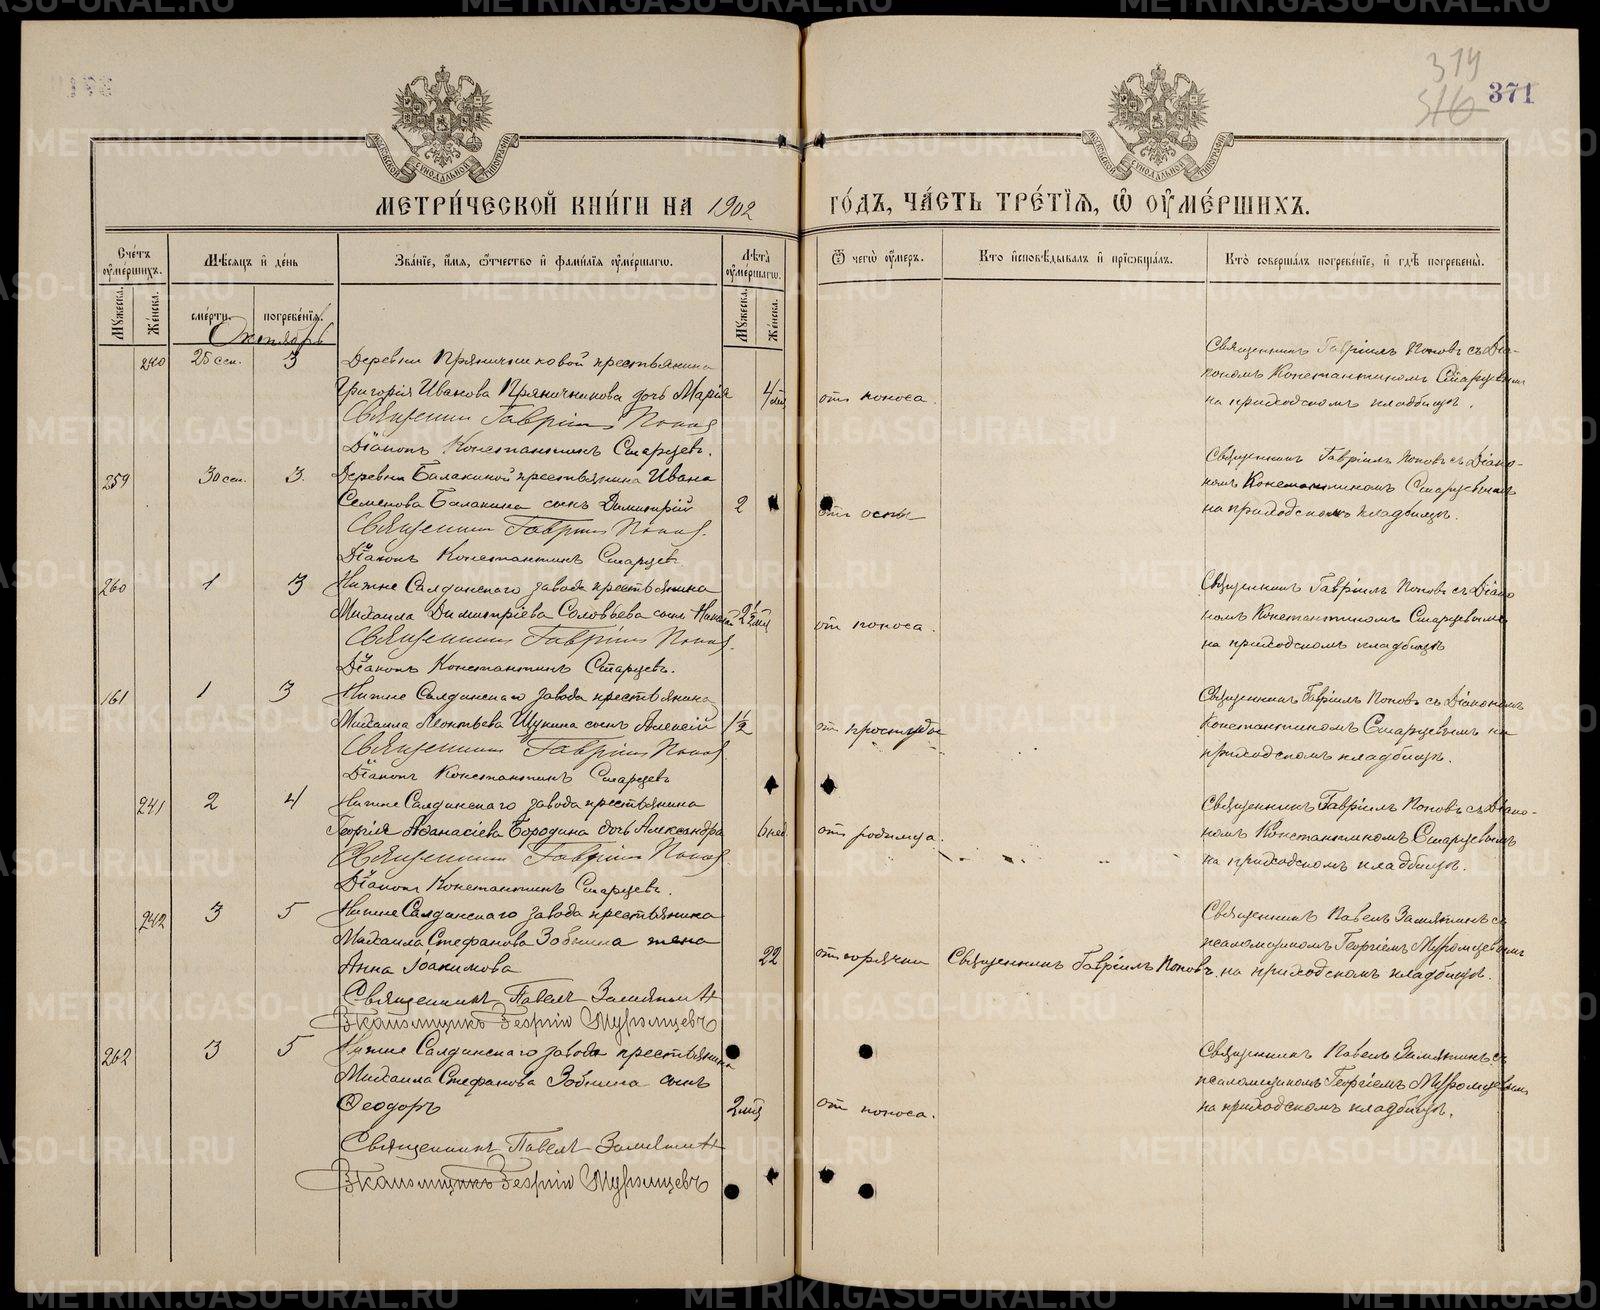 314
516
371
МЕТРИ́ЧЕСКОЙ КНИ́ГИ НА 1902 ГО́ДЪ, ЧА́СТЬ ТРЕ́ТІѦ, Ѽ ОУМЕ́РШИХЪ.
Счетъ оумершихъ.
Мѣсяцъ и день
Званіе, имя, отчество и фамилія оумершаго.
Лѣта оумершаго.
Ѿ чего оумеръ.
Кто исповѣдывалъ и пріобщалъ.
Кто совершалъ погребеніе, и гдѣ погребены.
Мужеска.
Женска.
смерти.
погребенія.
Мужеска.
Женска.
Октябрь
240 25 сен. 3 Деревни Пряничниковой крестьянина
Григорія Иванова Пряничникова дочь Марія 4 мц отъ поноса.
Священникъ Гавріилъ Поповъ
Діаконъ Константинъ Старцевъ.
Священникъ Гавріилъ Поповъ съ Діа-
кономъ Константиномъ Старцевымъ
на приходскомъ кладбищѣ.
259 30 сен. 3. Деревни Балакиной крестьянина Ивана
Семенова Балакина сынъ Димитрій 2 отъ оспы
Священникъ Гавріилъ Поповъ.
Діаконъ Константинъ Старцевъ
Священникъ Гавріилъ Поповъ съ Діако-
номъ Константиномъ Старцевымъ
на приходскомъ кладбищѣ.
260 1 3 Нижне Салдинскаго завода крестьянина
Михаила Димитріева Соловьева сынъ Николай 2½ мц отъ поноса.
Священникъ Гавріилъ Поповъ.
Діаконъ Константинъ Старцевъ.
Священникъ Гавріилъ Поповъ съ Діако
номъ Константиномъ Старцевымъ
на приходскомъ кладбищѣ
161 1 3 Нижне Салдинскаго завода крестьянина
Михаила Леонтьева Щукина сынъ Алексій 1½ отъ простуды
Священникъ Гавріилъ Поповъ
Діаконъ Константинъ Старцевъ
Священникъ Гавріилъ Поповъ съ Діакономъ
Константиномъ Старцевымъ на
приходскомъ кладбищѣ.
241 2 4 Нижне Салдинскаго завода крестьянина
Георгія Аѳанасіева Бородина дочь Александра 6 нед. отъ родимца.
Священникъ Гавріилъ Поповъ.
Діаконъ Константинъ Старцевъ.
Священникъ Гавріилъ Поповъ съ Діако-
номъ Константиномъ Старцевымъ
на приходскомъ кладбищѣ.
242 3 5 Нижне Салдинскаго завода крестьянина
Михаила Стефанова Зобнина жена
Анна Іоакимова 22 отъ горячки Священникъ Гавріилъ Поповъ
Священникъ Павелъ Замятинъ
Псаломщикъ Георгій Муромцевъ
Священникъ Павелъ Замятинъ съ
псаломщикомъ Георгіемъ Муромцевымъ
на приходскомъ кладбищѣ.
262 3 5 Нижне Салдинскаго завода крестьянина
Михаила Стефанова Зобнина сынъ
Ѳеодоръ 2 мц отъ поноса.
Священникъ Павелъ Замятинъ
Псаломщикъ Георгій Муромцевъ
Священникъ Павелъ Замятинъ съ
псаломщикомъ Георгіемъ Муромцевымъ
на приходскомъ кладбищѣ.
METRIKI.GASO-URAL.RU